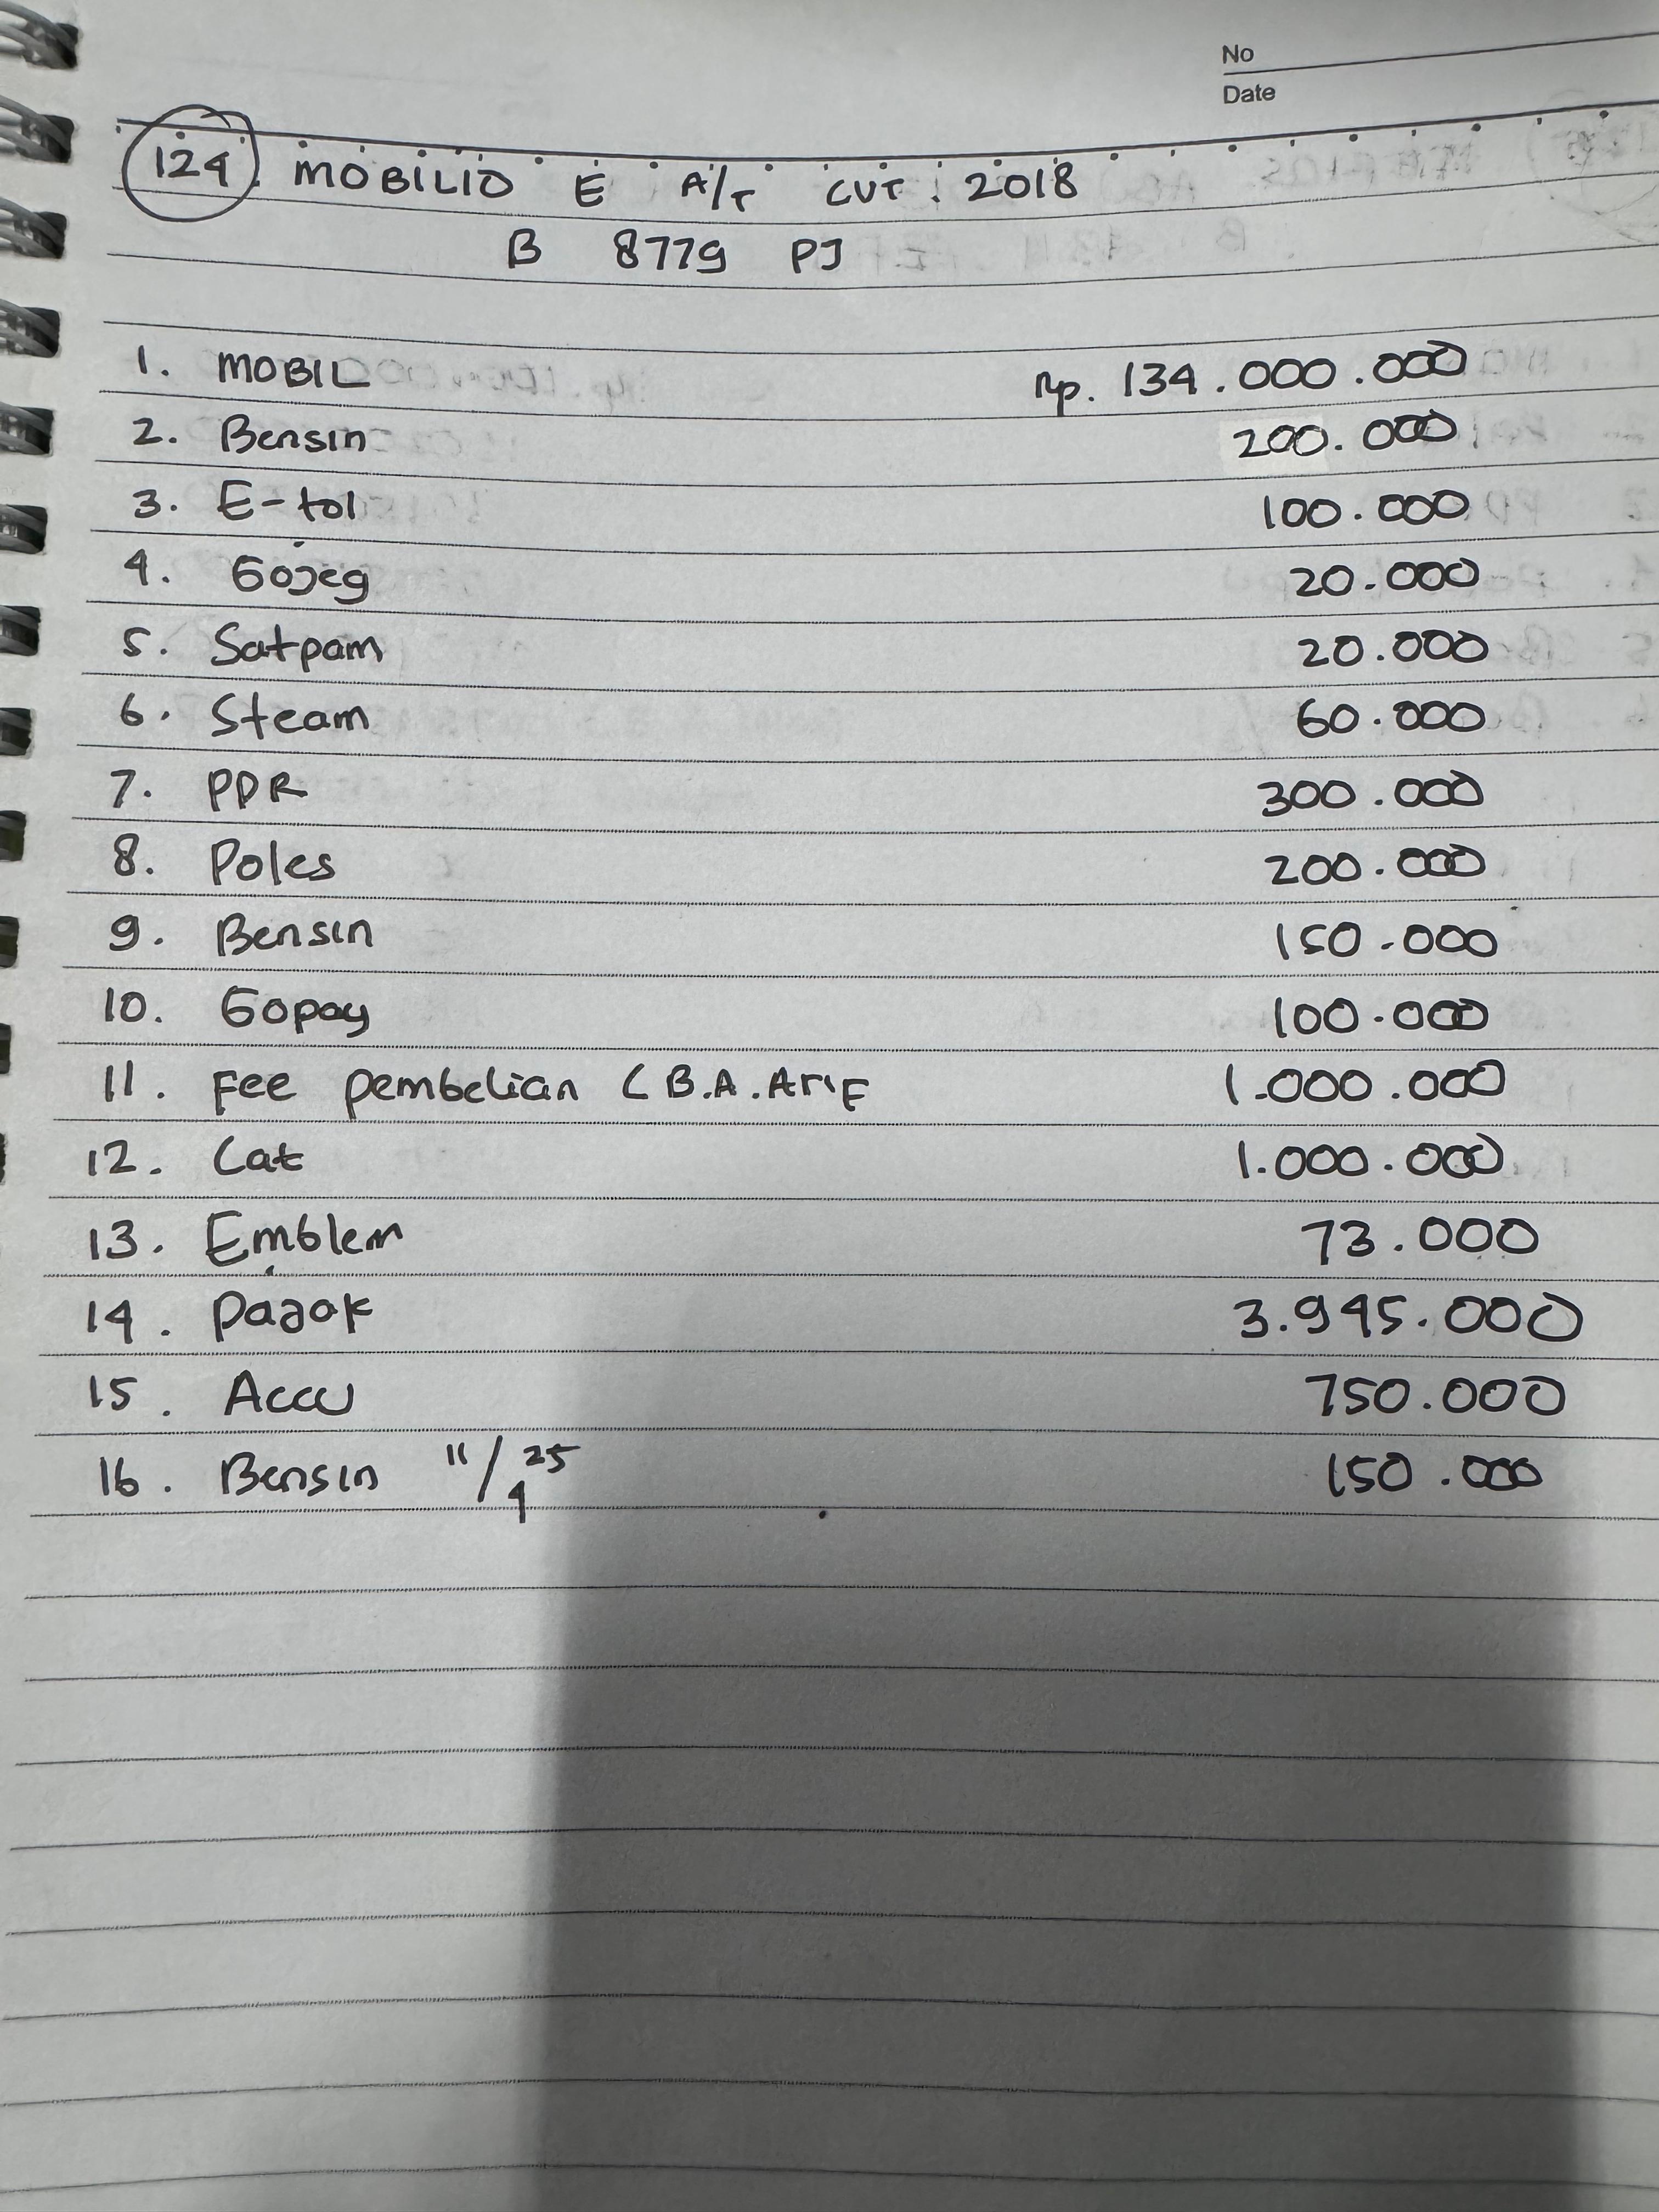 No
Date
124. MOBILIO E A/T CVT. 2018
B 8779 PJ
1. MOBIL Rp. 134.000.000
2. Bensin 200.000
3. E-tol 100.000
4. Gojeg 20.000
5. Satpam 20.000
6. Steam 60.000
7. PDR 300.000
8. Poles 200.000
9. Bensin 150.000
10. Gopay 100.000
11. Fee pembelian ( B.A. Arif 1.000.000
12. Cat 1.000.000
13. Emblem 73.000
14. Pajak 3.945.000
15. Accu 750.000
16. Bensin 11/4 25 150.000